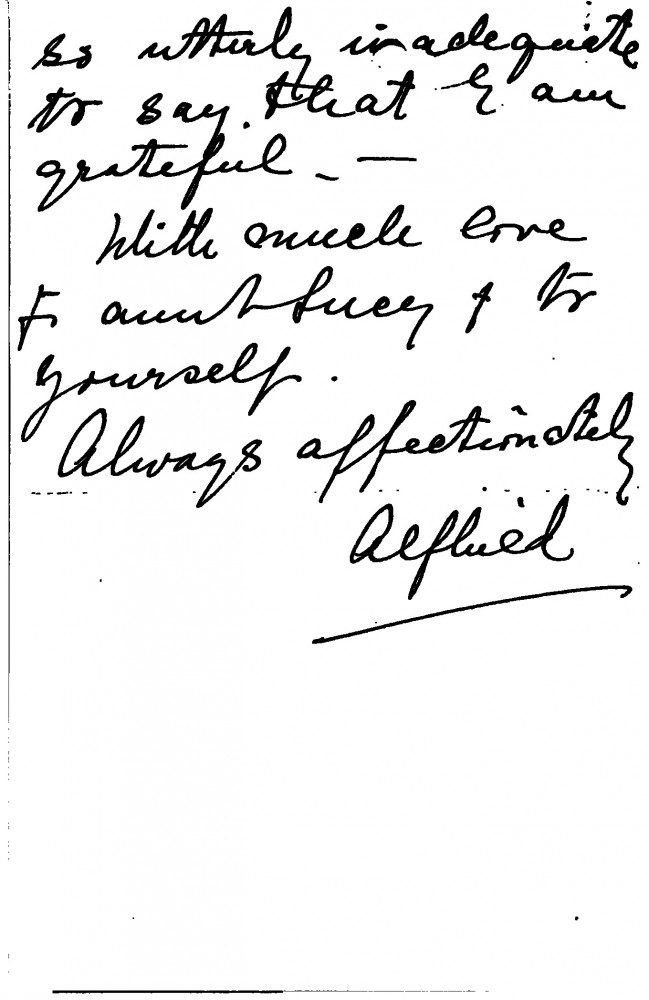 so utterly inadequate
to say that I am
grateful. —
With much love
to aunt Lucy & to
yourself.
Always affectionately
Alfried